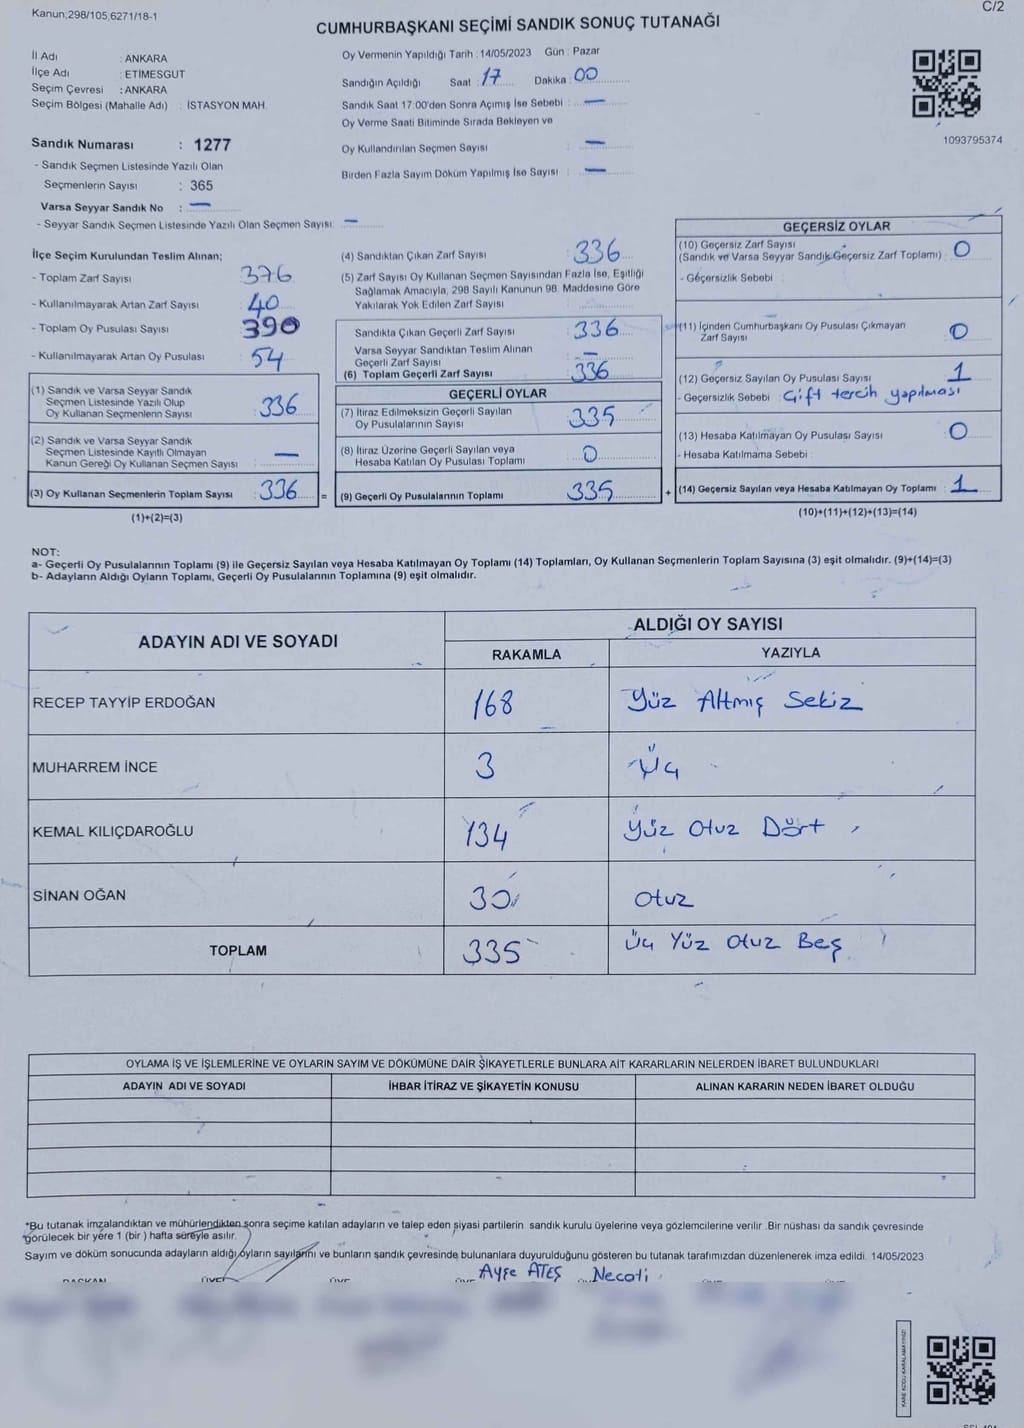 Kanun;298/105,6271/18-1
C/2
CUMHURBAŞKANI SEÇİMİ SANDIK SONUÇ TUTANAĞI
İl Adı : ANKARA
İlçe Adı : ETİMESGUT
Seçim Çevresi : ANKARA
Seçim Bölgesi (Mahalle Adı) : İSTASYON MAH.
Oy Vermenin Yapıldığı Tarih : 14/05/2023 Gün : Pazar
Sandığın Açıldığı Saat : 17 Dakika : 00
Sandık Saat 17:00'den Sonra Açımış İse Sebebi : —
Oy Verme Saati Bitiminde Sırada Bekleyen ve
Oy Kullandırılan Seçmen Sayısı : —
Birden Fazla Sayım Döküm Yapılmış İse Sayısı : —
1093795374
Sandık Numarası : 1277
- Sandık Seçmen Listesinde Yazılı Olan
Seçmenlerin Sayısı : 365
Varsa Seyyar Sandık No : —
- Seyyar Sandık Seçmen Listesinde Yazılı Olan Seçmen Sayısı: —
İlçe Seçim Kurulundan Teslim Alınan;
- Toplam Zarf Sayısı 376
- Kullanılmayarak Artan Zarf Sayısı : 40
- Toplam Oy Pusulası Sayısı : 390
- Kullanılmayarak Artan Oy Pusulası : 54
(1) Sandık ve Varsa Seyyar Sandık
Seçmen Listesinde Yazılı Olup
Oy Kullanan Seçmenlerin Sayısı : 336
(2) Sandık ve Varsa Seyyar Sandık
Seçmen Listesinde Kayıtlı Olmayan
Kanun Gereği Oy Kullanan Seçmen Sayısı : —
(3) Oy Kullanan Seçmenlerin Toplam Sayısı : 336 =
(1)+(2)=(3)
(4) Sandıktan Çıkan Zarf Sayısı : 336
(5) Zarf Sayısı Oy Kullanan Seçmen Sayısından Fazla İse, Eşitliği
Sağlamak Amacıyla, 298 Sayılı Kanunun 98. Maddesine Göre
Yakılarak Yok Edilen Zarf Sayısı :
Sandıkta Çıkan Geçerli Zarf Sayısı : 336
Varsa Seyyar Sandıktan Teslim Alınan
Geçerli Zarf Sayısı : —
(6) Toplam Geçerli Zarf Sayısı : 336
GEÇERLİ OYLAR
(7) İtiraz Edilmeksizin Geçerli Sayılan
Oy Pusulalarının Sayısı : 335
(8) İtiraz Üzerine Geçerli Sayılan veya
Hesaba Katılan Oy Pusulası Toplamı : 0
(9) Geçerli Oy Pusulalarının Toplamı : 335 +
GEÇERSİZ OYLAR
(10) Geçersiz Zarf Sayısı
(Sandık ve Varsa Seyyar Sandık Geçersiz Zarf Toplamı) : 0
- Geçersizlik Sebebi :
(11) İçinden Cumhurbaşkanı Oy Pusulası Çıkmayan
Zarf Sayısı : 0
(12) Geçersiz Sayılan Oy Pusulası Sayısı : 1
- Geçersizlik Sebebi : Çift tercih yapılması
(13) Hesaba Katılmayan Oy Pusulası Sayısı : 0
- Hesaba Katılmama Sebebi :
(14) Geçersiz Sayılan veya Hesaba Katılmayan Oy Toplamı : 1
(10)+(11)+(12)+(13)=(14)
NOT:
a- Geçerli Oy Pusulalarının Toplamı (9) ile Geçersiz Sayılan veya Hesaba Katılmayan Oy Toplamı (14) Toplamları, Oy Kullanan Seçmenlerin Toplam Sayısına (3) eşit olmalıdır. (9)+(14)=(3)
b- Adayların Aldığı Oyların Toplamı, Geçerli Oy Pusulalarının Toplamına (9) eşit olmalıdır.
ADAYIN ADI VE SOYADI
ALDIĞI OY SAYISI
RAKAMLA YAZIYLA
RECEP TAYYİP ERDOĞAN 168 Yüz Altmış Sekiz
MUHARREM İNCE 3 Üç
KEMAL KILIÇDAROĞLU 134 Yüz Otuz Dört
SİNAN OĞAN 30 Otuz
TOPLAM 335 Üç Yüz Otuz Beş
OYLAMA İŞ VE İŞLEMLERİNE VE OYLARIN SAYIM VE DÖKÜMÜNE DAİR ŞİKAYETLERLE BUNLARA AİT KARARLARIN NELERDEN İBARET BULUNDUKLARI
ADAYIN ADI VE SOYADI İHBAR İTİRAZ VE ŞİKAYETİN KONUSU ALINAN KARARIN NEDEN İBARET OLDUĞU
*Bu tutanak imzalandıktan ve mühürlendikten sonra seçime katılan adayların ve talep eden siyasi partilerin sandık kurulu üyelerine veya gözlemcilerine verilir .Bir nüshası da sandık çevresinde
görülecek bir yere 1 (bir ) hafta süreyle asılır.
Sayım ve döküm sonucunda adayların aldığı oyların sayılarını ve bunların sandık çevresinde bulunanlara duyurulduğunu gösteren bu tutanak tarafımızdan düzenlenerek imza edildi. 14/05/2023
Ayşe ATEŞ Necati
BAŞKAN
KARE KODU KARALAMAYINIZ!